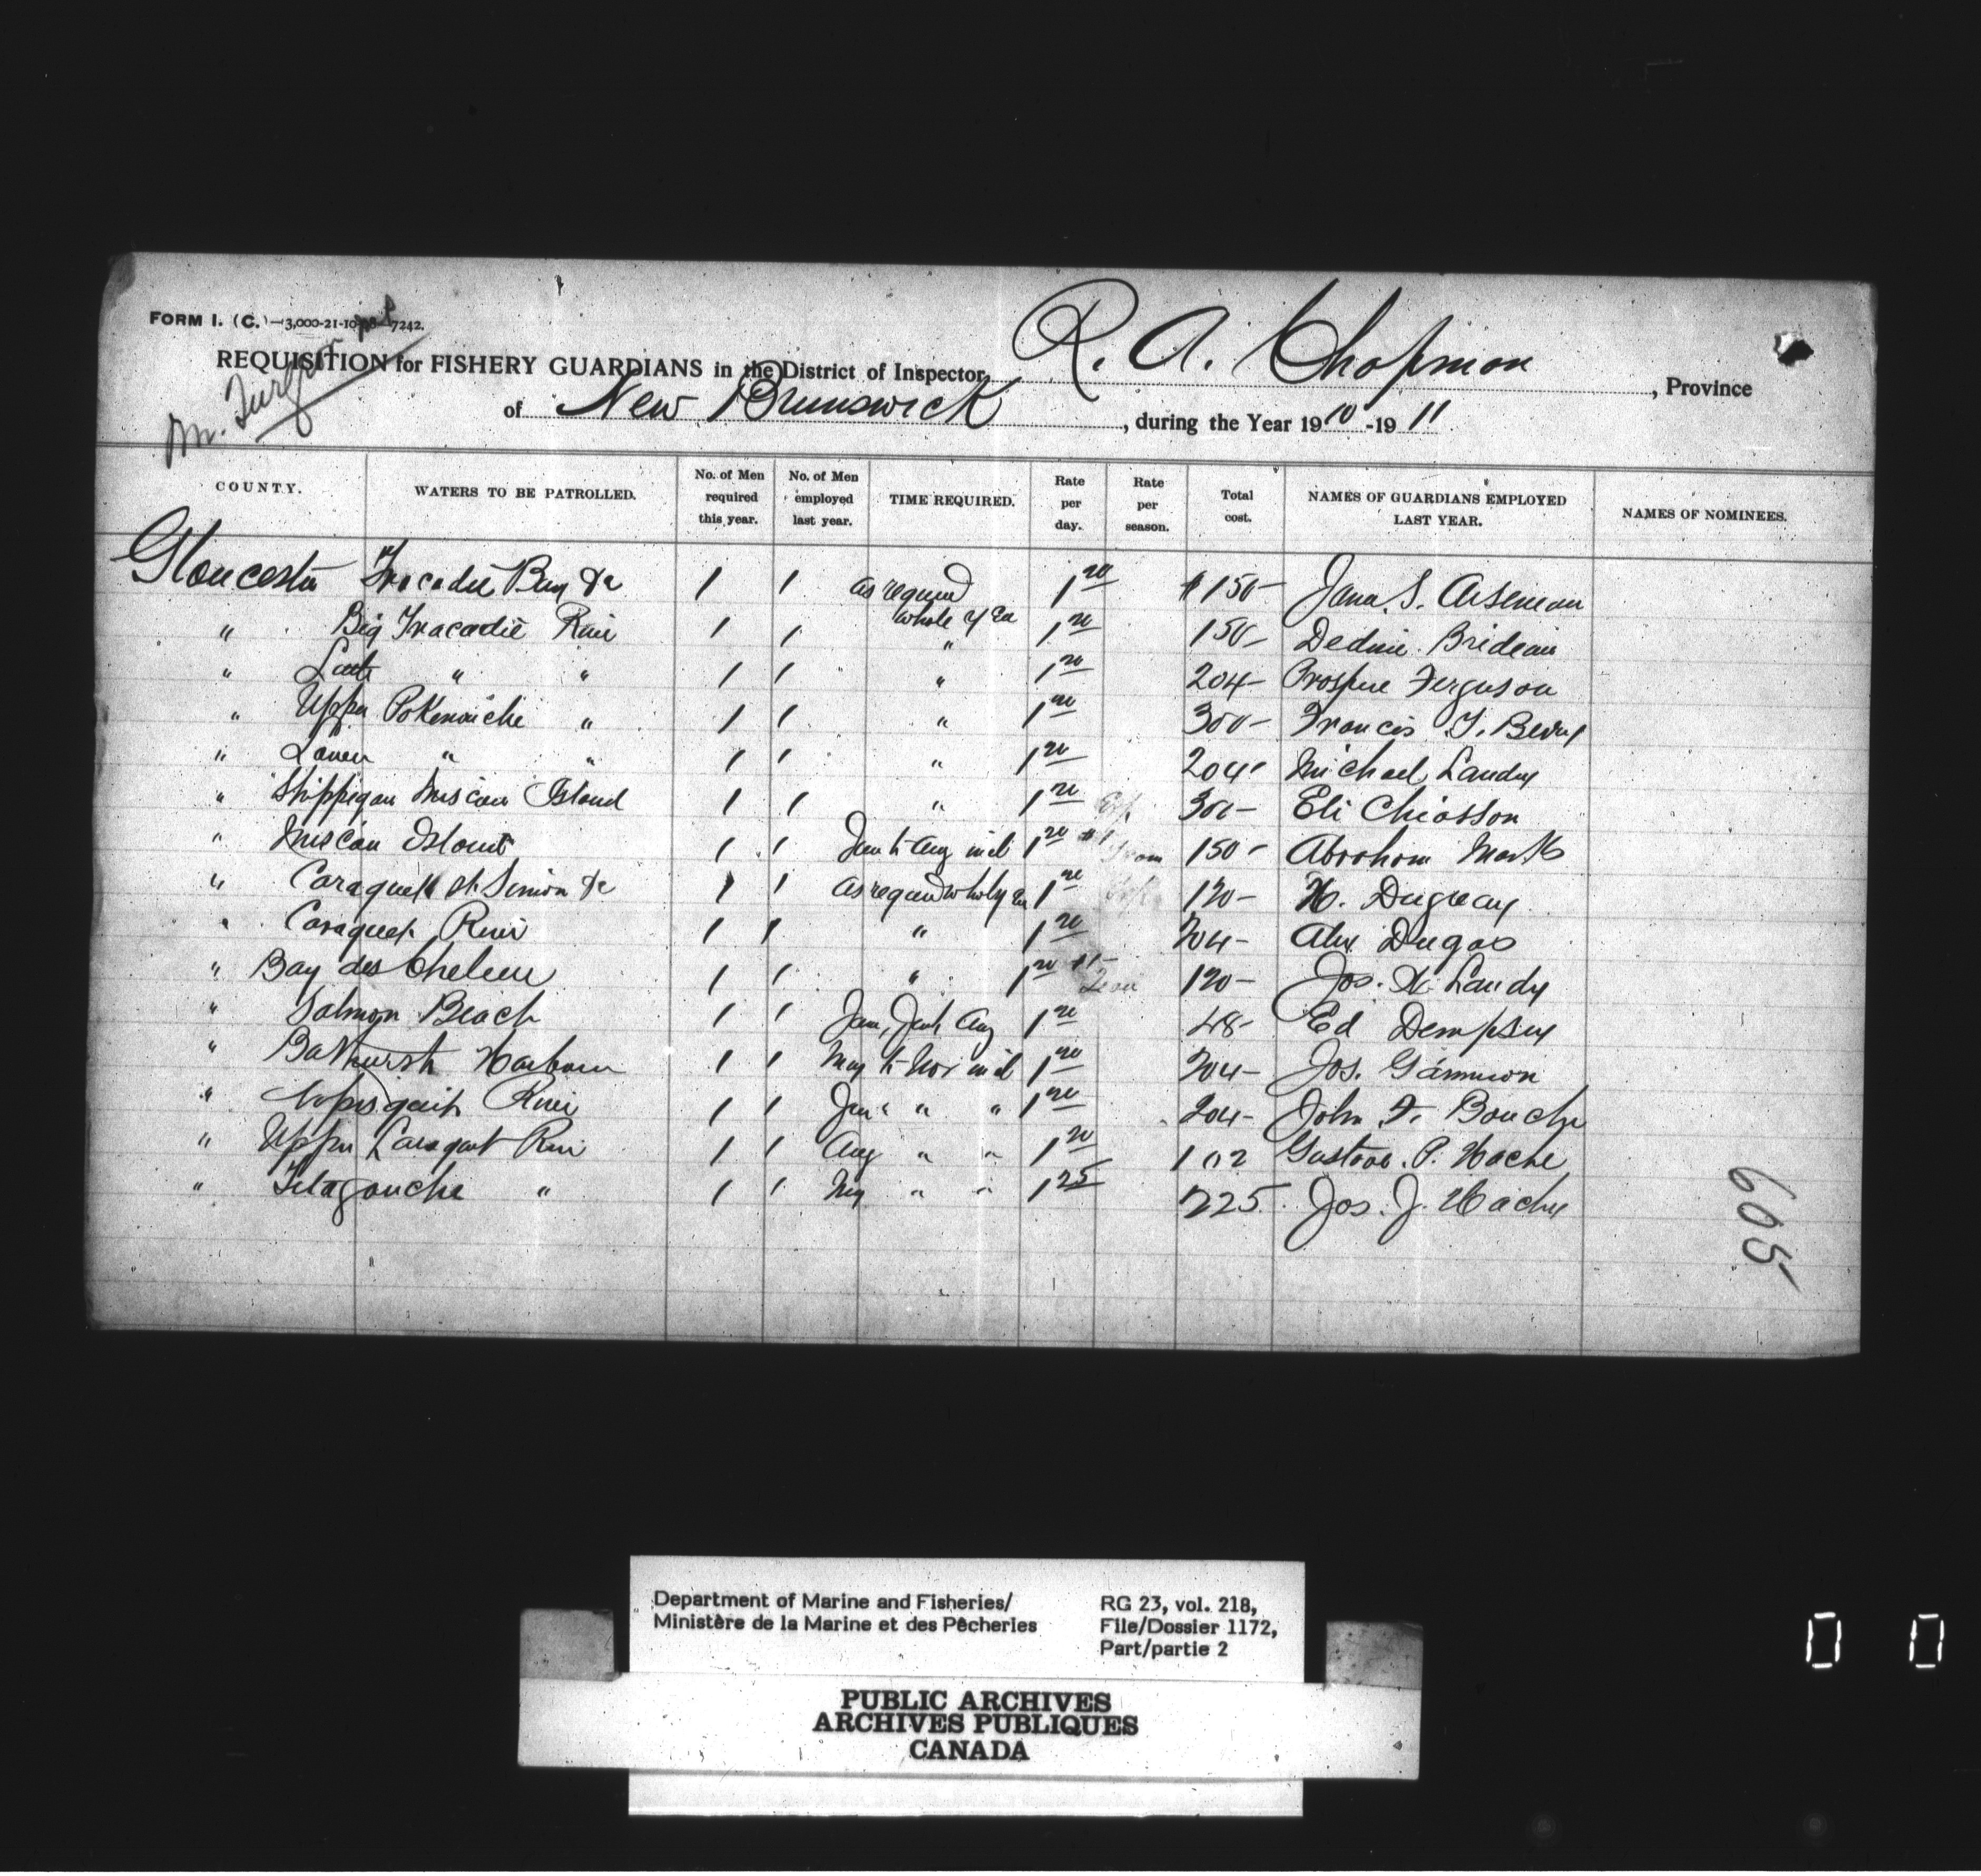 FORM I. (C.)—3,000-21-10-08—7242.
REQUISITION for FISHERY GUARDIANS in the District of Inspector R. A. Chapman, Province
of New Brunswick, during the Year 1910-1911
COUNTY. WATERS TO BE PATROLLED. No. of Men required this year. No. of Men employed last year. TIME REQUIRED. Rate per day. Rate per season. Total cost. NAMES OF GUARDIANS EMPLOYED LAST YEAR. NAMES OF NOMINEES.
Gloucester Tracadie Bay &c 1 1 as required whole yea 1 20 $150- S. Arseneau
" Big Tracadie River 1 1 " 1 20 150- Brideau
" Little " " 1 1 " 1 20 204- Prospere Ferguson
" Upper Pokemouche " 1 1 " 1 20 300- Francis
" Lower " " 1 1 " 1 20 204- Michael Landry
" Shippigan Miscou Island 1 1 " 1 20 300- Eli Chiasson
" Miscou Island 1 1 to Aug incl 1 20 150- Abraham Marks
" Caraquet St. Simon &c 1 1 as required 1 20 120- H. Duguay
" Caraquet River 1 1 " 1 20 204- Alex Dugas
" Bay des Cheleur 1 1 " 1 20 120- Jos. H. Landry
" Salmon Beach 1 1 Aug 1 20 48- Ed Dempsey
" Bathurst Harbour 1 1 May to Nov incl 1 20 204- Jos.
" Nepisiguit River 1 1 " " 1 20 204- John F. Boucher
" Upper Caraquet River 1 1 Aug " " 1 20 102 Gustave P. Hache
" Tetagouche " 1 1 May " " 1 25 225 Jos. J. Hachey
605
Department of Marine and Fisheries/
Ministère de la Marine et des Pêcheries
RG 23, vol. 218,
File/Dossier 1172,
Part/partie 2
PUBLIC ARCHIVES
ARCHIVES PUBLIQUES
CANADA
0 0